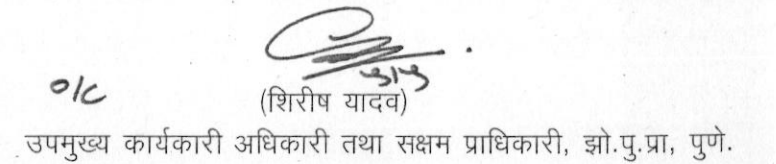 o/c
(शिरीष यादव)
उपमुख्य कार्यकारी अधिकारी तथा सक्षम प्राधिकारी, झो.पु.प्रा, पुणे.